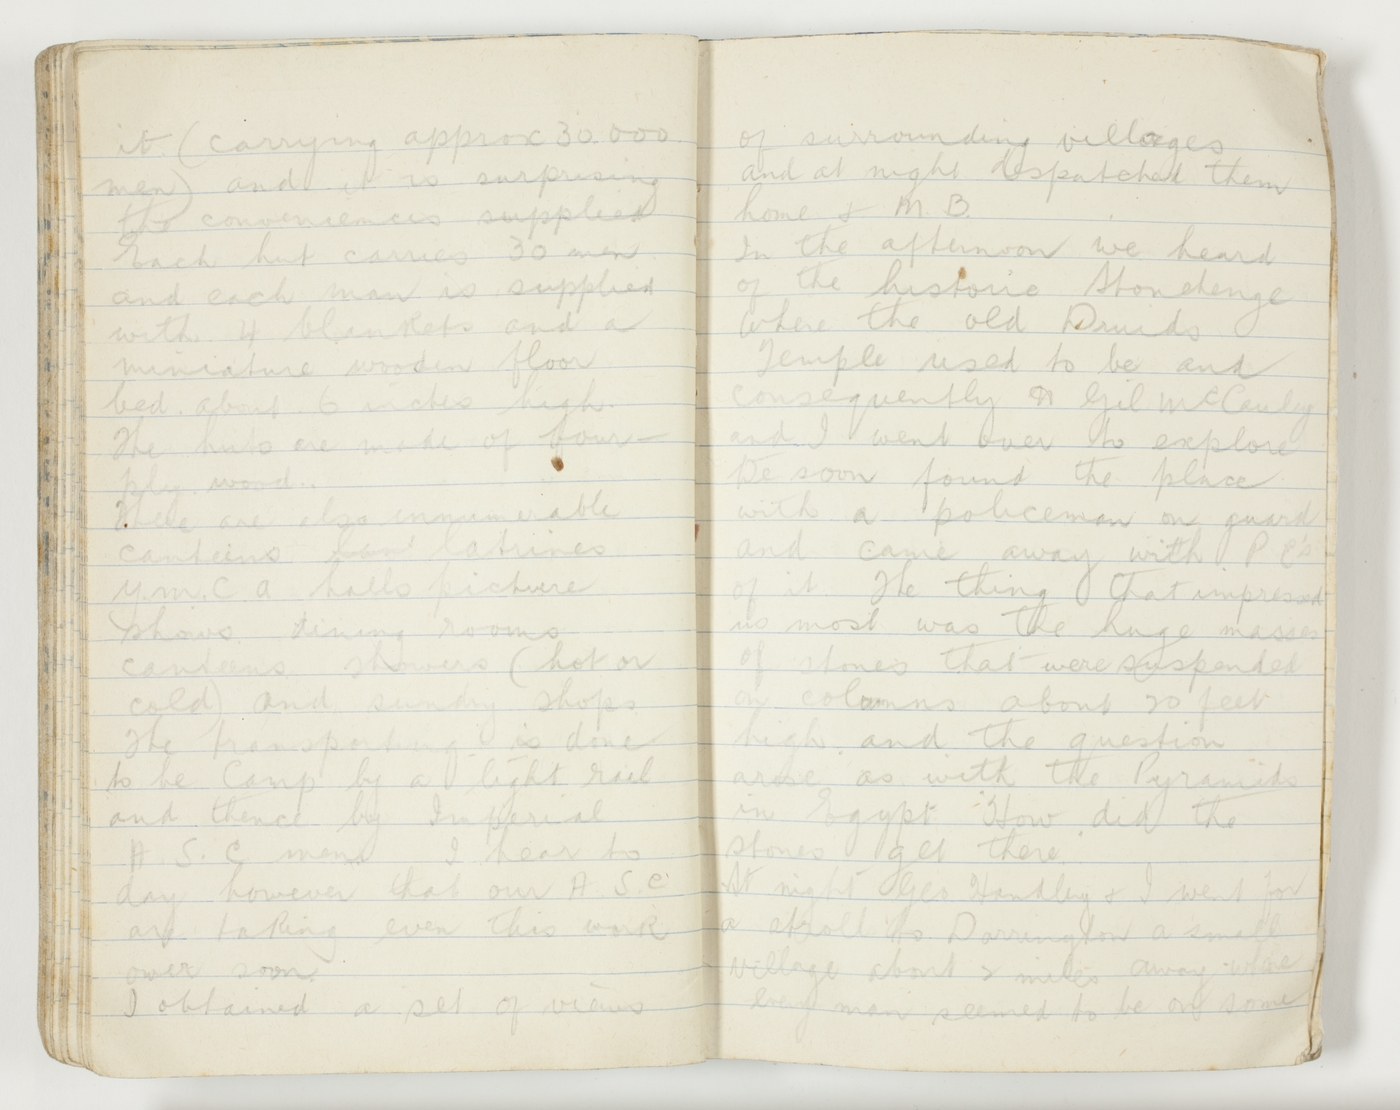 it (carrying approx 30.000
men) and it is surprising
the conveniences supplied
Each hut carries 30 men
and each man is supplied
with 4 blankets and a
miniature wooden floor
bed about 6 inches high.
The huts are made of four-
ply wood..
There are also innumerable
canteens latrines
Y.M.C.A halls picture
shows dining rooms
canteens showers (hot or
cold) and sundry shops
The transporting is done
to be Camp by a light rail
and thence by Imperial
A.S.C men. I hear to
day however that our A.S.C
are taking even this work
over soon.
I obtained a set of views
of surrounding villages
and at night despatched them
home & M.B.
In the afternoon we heard
of the historic Stonehenge
where the old Druids
Temple used to be and
consequently Gil McCauley
and I went over to explore
We soon found the place
with a policeman on guard
and came away with P C's
of it. The thing that impressed
us most was the huge masses
of stones that were suspended
on columns about 20 feet
high and the question
arose as with the Pyramids
in Egypt "How did the
stones get there
At night Geo Handley & I went for
a stroll to Durrington a small
village about 2 miles away where
every man seemed to be on some